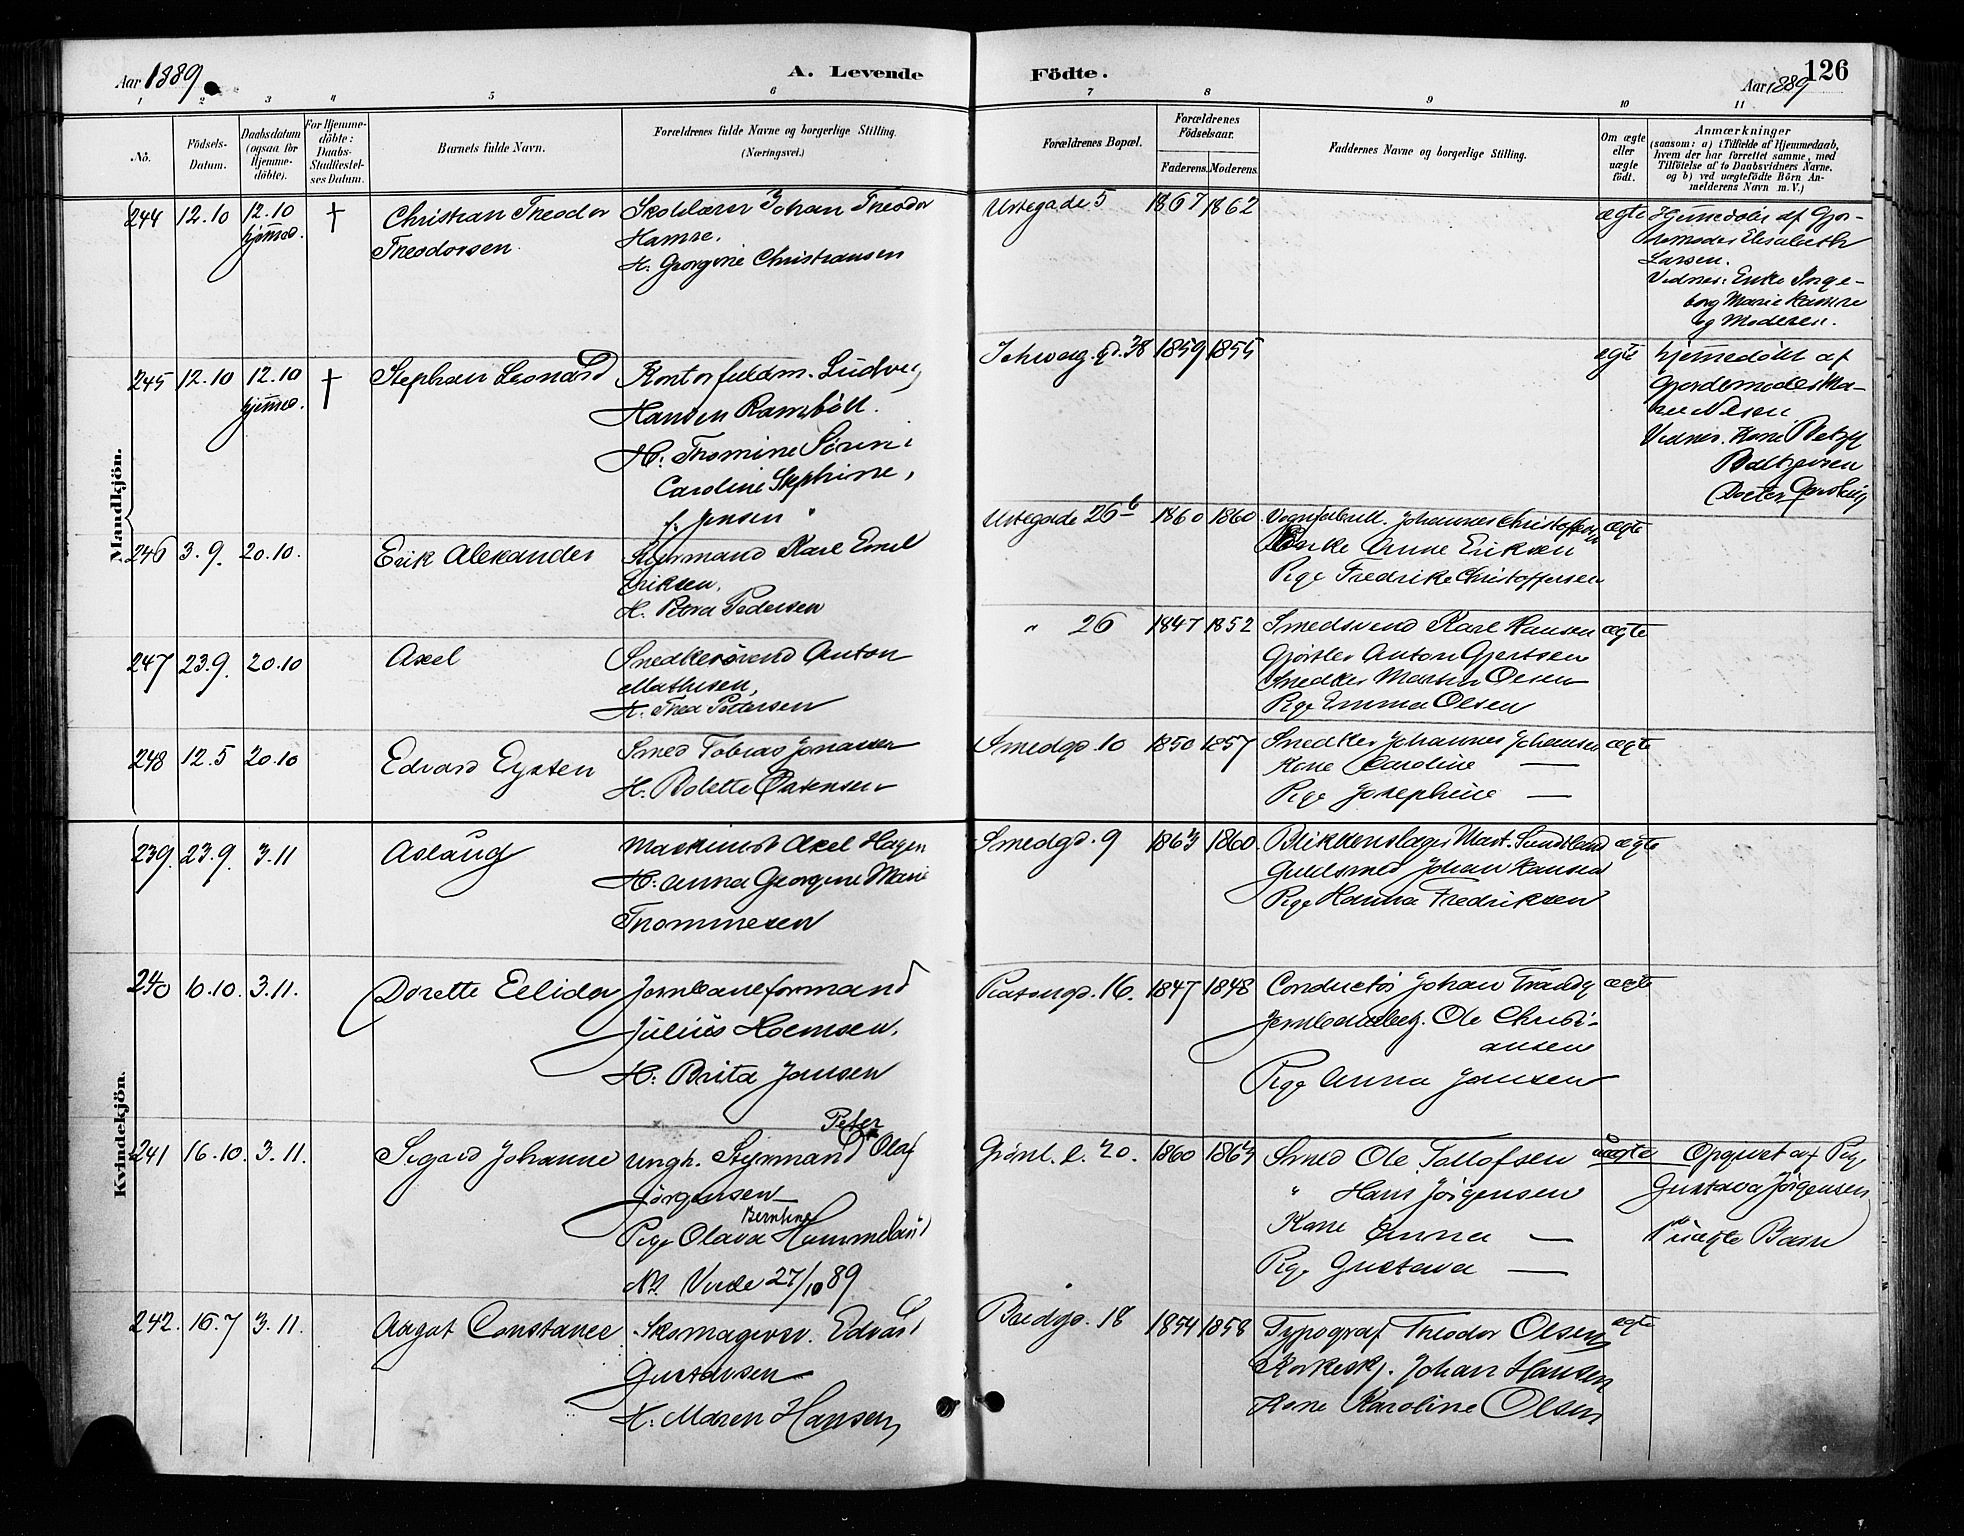 Aar 1889.
A. Levende
Födte.
126
Aar 1889
1 2 3 4 5 6 7 8 9 10 11
No.
Födsels-Datum.
Daabsdatum (ogsaa for Hjemme-döbte).
For Hjemme-döbte: Daabs-Stadfæstel-ses Datum.
Barnets fulde Navn.
Forældrenes fulde Navne og borgerlige Stilling.
(Næringsvei.)
Forældrenes Bopæl.
Forældrenes Födselsaar.
Faderens. Moderens.
Faddernes Navne og borgerlige Stilling.
Om ægte eller uægte födt.
Anmærkninger
(saasom: a) i Tilfælde af Hjemmedaab,
hvem der har forrettet samme, med
Tilföielse af to Daabsvidners Navne.
og b) ved uægtefödte Börn An-
melderens Navn m. V.)
Mandkjön.
244 12.10 12.10 hjemmed. † Christian Theodor
Theodorsen
Skolelærer Johan Theodor
Hamre.
H. Georgine Christiansen
Urtegade 5 1867 1862
ægte
Hjemmedöbt af Gjor-
demoder Elisabeth
Larsen.
Vidner: Enke Inge-
borg Marie Hamre
og Moderen.
245 12.10 12.10 hjemmed. † Stephan Leonard
Kontorfuldm. Ludvig
Hansen Ramböll.
H. Thomine Sörine
Caroline Stephine,
f. Jensen
Schweig.gd. 38 1859 1855
ægte
hjemmedöbt af
Gjordemoder Ma-
ren Nilsen
Vidner. Kone Betzy
Baltzersen
246 3.9. 20.10. Erik Alexander
Styrmand Karl Emil
Eriksen,
H. Rosa Pedersen
Urtegade 26 b 1860 1860
Vognfabrik. Johannes Christoffersen
Enke Anne Eriksen
Pige Fredrike Christoffersen
ægte
247 23.9. 20.10 Axel
Snedkersvend Anton
Mathisen,
H. Thea Pettersen
" 26 1847 1852
Smedsvend Karl Hansen
Gjörtler Anton Gjertsen
Snedker Martin Olsen
Pige Emma Olsen
ægte
248 12.5 20.10 Edvard Eysten
Smed Tobias Jonassen
H. Bolette Östensen
Smedgd. 10 1850 1857
Snedker Johannes Johansen
Kone Caroline —
Pige Josephine —
ægte
Kvindekjön.
239. 23.9. 3.11 Aslaug
Maskinist Axel Hagen
H. Anna Georgine Marie
Thommesen
Smedgd. 9 1863 1860
Blikkenslager Mart. Sundsland
Guldsmed Johan Hansen
Pige Hanna Fredriksen
ægte
240 10.10. 3.11. Dorette Ellida
Jernbaneformand
Julius Holmsen.
H. Brita Jansen
Platougd. 16. 1847 1848
Conductör Johan Trandy
Jernbanebetj. Ole Christi-
ansen
Pige Anna Jansen
ægte
241 16.10. 3.11. Sigrid Johanne
Ungk. Styrmand Peter Olaf
Jörgensen
Pige Olava Berntine Hammeland
Nt. Viede 27/10 89
Grönl. L. 20. 1860 1863
Smed Ole Tollofsen
" Hans Jörgensen
Kone Anna —
Pige Gustava —
uægte
Opgivet af Pige
Gustava Jörgensen
1ste uægte Barn
242. 16.7 3.11. Aagot Constance
Skomagersv. Edvard
Gustavsen
H. Maren Hansen
Bredgd. 18 1854 1858
Typograf Theodor Olsen
Korkeskj. Johan Hansen
Kone Karoline Olsen
ægte